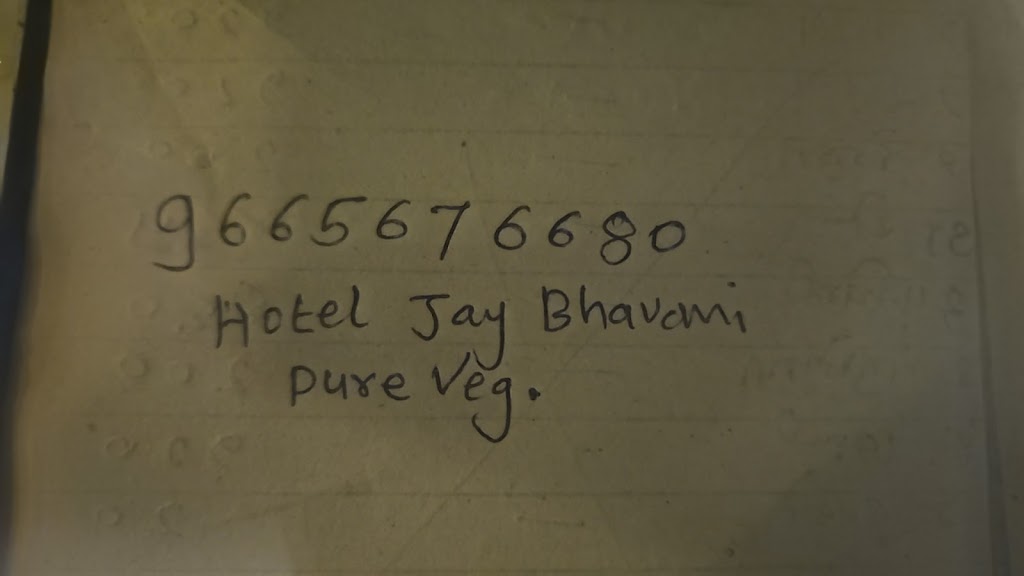 9665676680
Hotel Jay Bhavani
pure Veg.